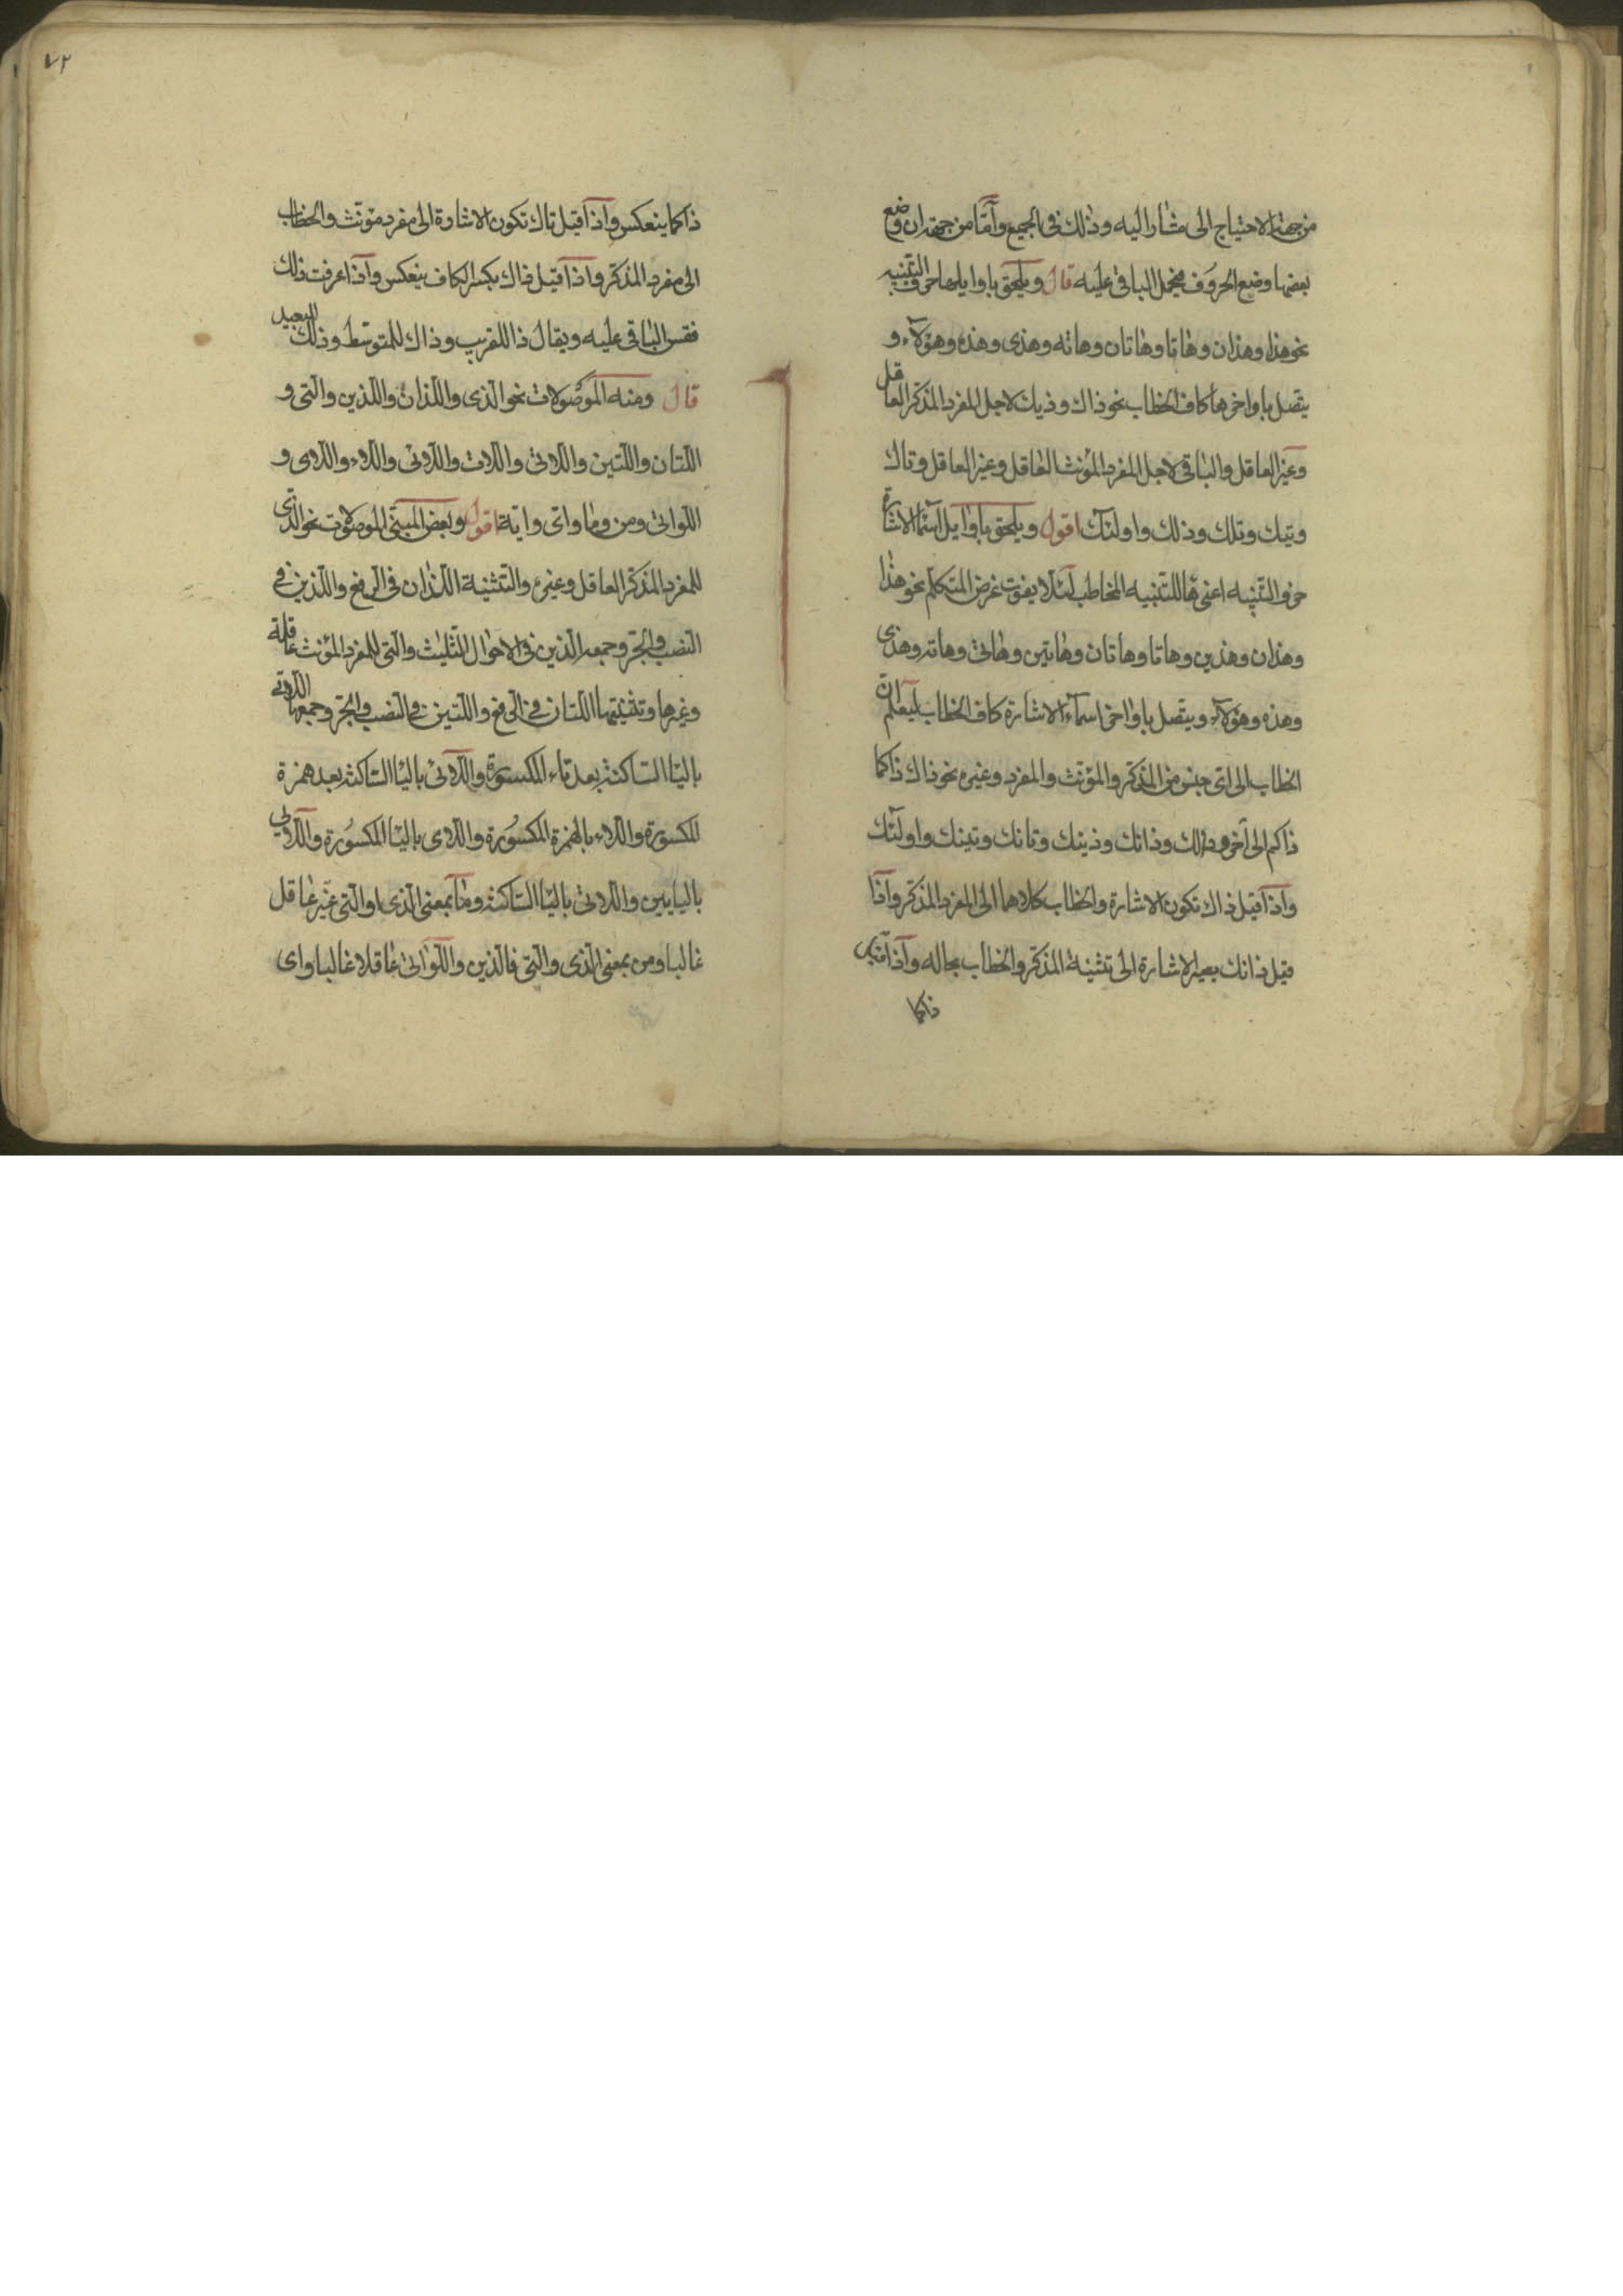 من جهة الاحتياج الى مشار اليه وذلك فى الجميع وآما من جهة ان وضع
بعضها وضع الحروف فيحمل الباقى عليه قال ويلحق باوايلها حرف التنبيه
نحو هذا وهذان وهاتا وهاتان وهاته وهذى وهذه وهؤلآء و
يتصل باواخرها كاف الخطاب نحو ذاك وذيك لاجل المفرد المذكر العاقل
وغير العاقل والباقى لاجل المفرد المؤنث العاقل وغير العاقل وتاك
وتيك وتلك وذلك واولئك اقول ويلحق باوايل اسما الاشارة
حرف التنبيه اعنى ها للتنبيه المخاطب لئلا يفوت غرض المتكلم نحو هذا
وهذان وهذين وهاتا وهاتان وهاتين وهاتى وهاته وهذى
وهذه وهؤلآء ويتصل باواخر اسمآء الاشارة كاف الخطاب ليعلم ان
الخطاب الى اى جنس من المذكر والمؤنث والمفرد وغيره نحو ذاك ذاكما
ذاكم الى آخره وذلك وذانك وذينك وتانك وتينك واولئك
واذا قيل ذاك تكون الاشارة والخطاب كلاهما الى المفرد المذكر واذا
قيل ذانك بغير الاشارة الى تثنية المذكر والخطاب بحاله واذا قيل
ذاكما
٧٢
ذاكما ينعكس واذا قيل تاك تكون الاشارة الى مفرد مؤنث والخطاب
الى مفرد المذكر واذا قيل ذاك بكسر الكاف ينعكس واذا عرفت ذلك
فقس الباقى عليه ويقال ذا للقريب وذاك للمتوسط وذلك للبعيد
قال ومنه الموصولات نحو الذى واللذان واللذين والتى و
اللتان واللتين واللاتى واللات واللائى واللاء واللاى و
اللواتى ومن وما واى واية اقول وبعض المبنى الموصولات نحو الذى
للمفرد المذكر العاقل وغيره والتثنية اللذان فى الرفع واللذين فى
النصب والجر وجمعه الذين فى الاحوال الثليث والتى للمفرد المؤنث عاقلة
وغيرها وتثنيتها اللتان فى الرفع واللتين فى النصب والجر وجمعها اللاتى
باليا الساكنة بعد تاء المكسورة واللائى باليا الساكنة بعد همزة
المكسورة واللاء بالهمزة المكسورة واللاى باليا المكسورة واللايى
باليايين واللاتى باليا الساكنة وما بمعنى الذى او التى غير عاقل
غالبا ومن بمعنى الذى والتى فالذين واللواتى عاقلا غالبا واى